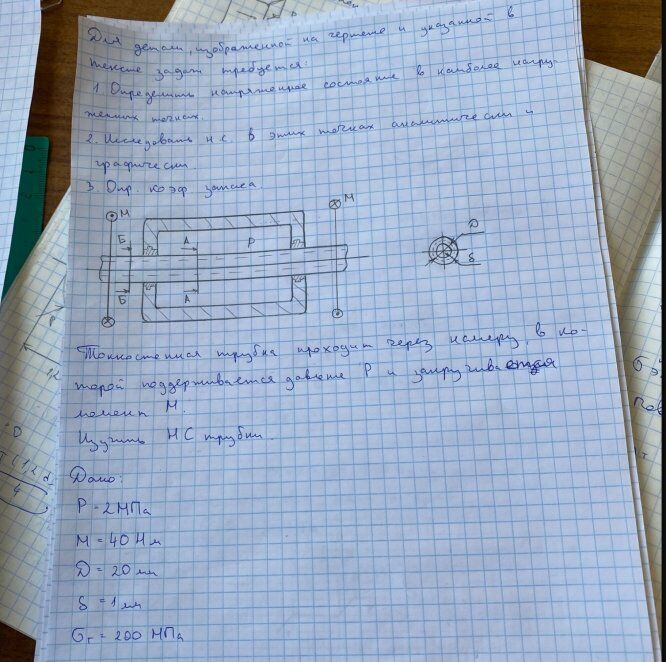 Для детали, изображенной на чертеже и указанной в
тексте задач требуется:
1. Определить напряженное состояние в наиболее нагру-
женных точках.
2. Исследовать н.с. в этих точках аналитически и
графически.
3. Опр. коэф. запаса.
М
М
Б
А
Р
Б
А
D
δ
Тонкостенная трубка проходит через камеру, в ко-
торой поддерживается давление Р и закручива
момент М.
Изучить НС трубки.
Дано:
Р = 2 МПа
М = 40 Нм
D = 20 мм
δ = 1 мм
σт = 200 МПа